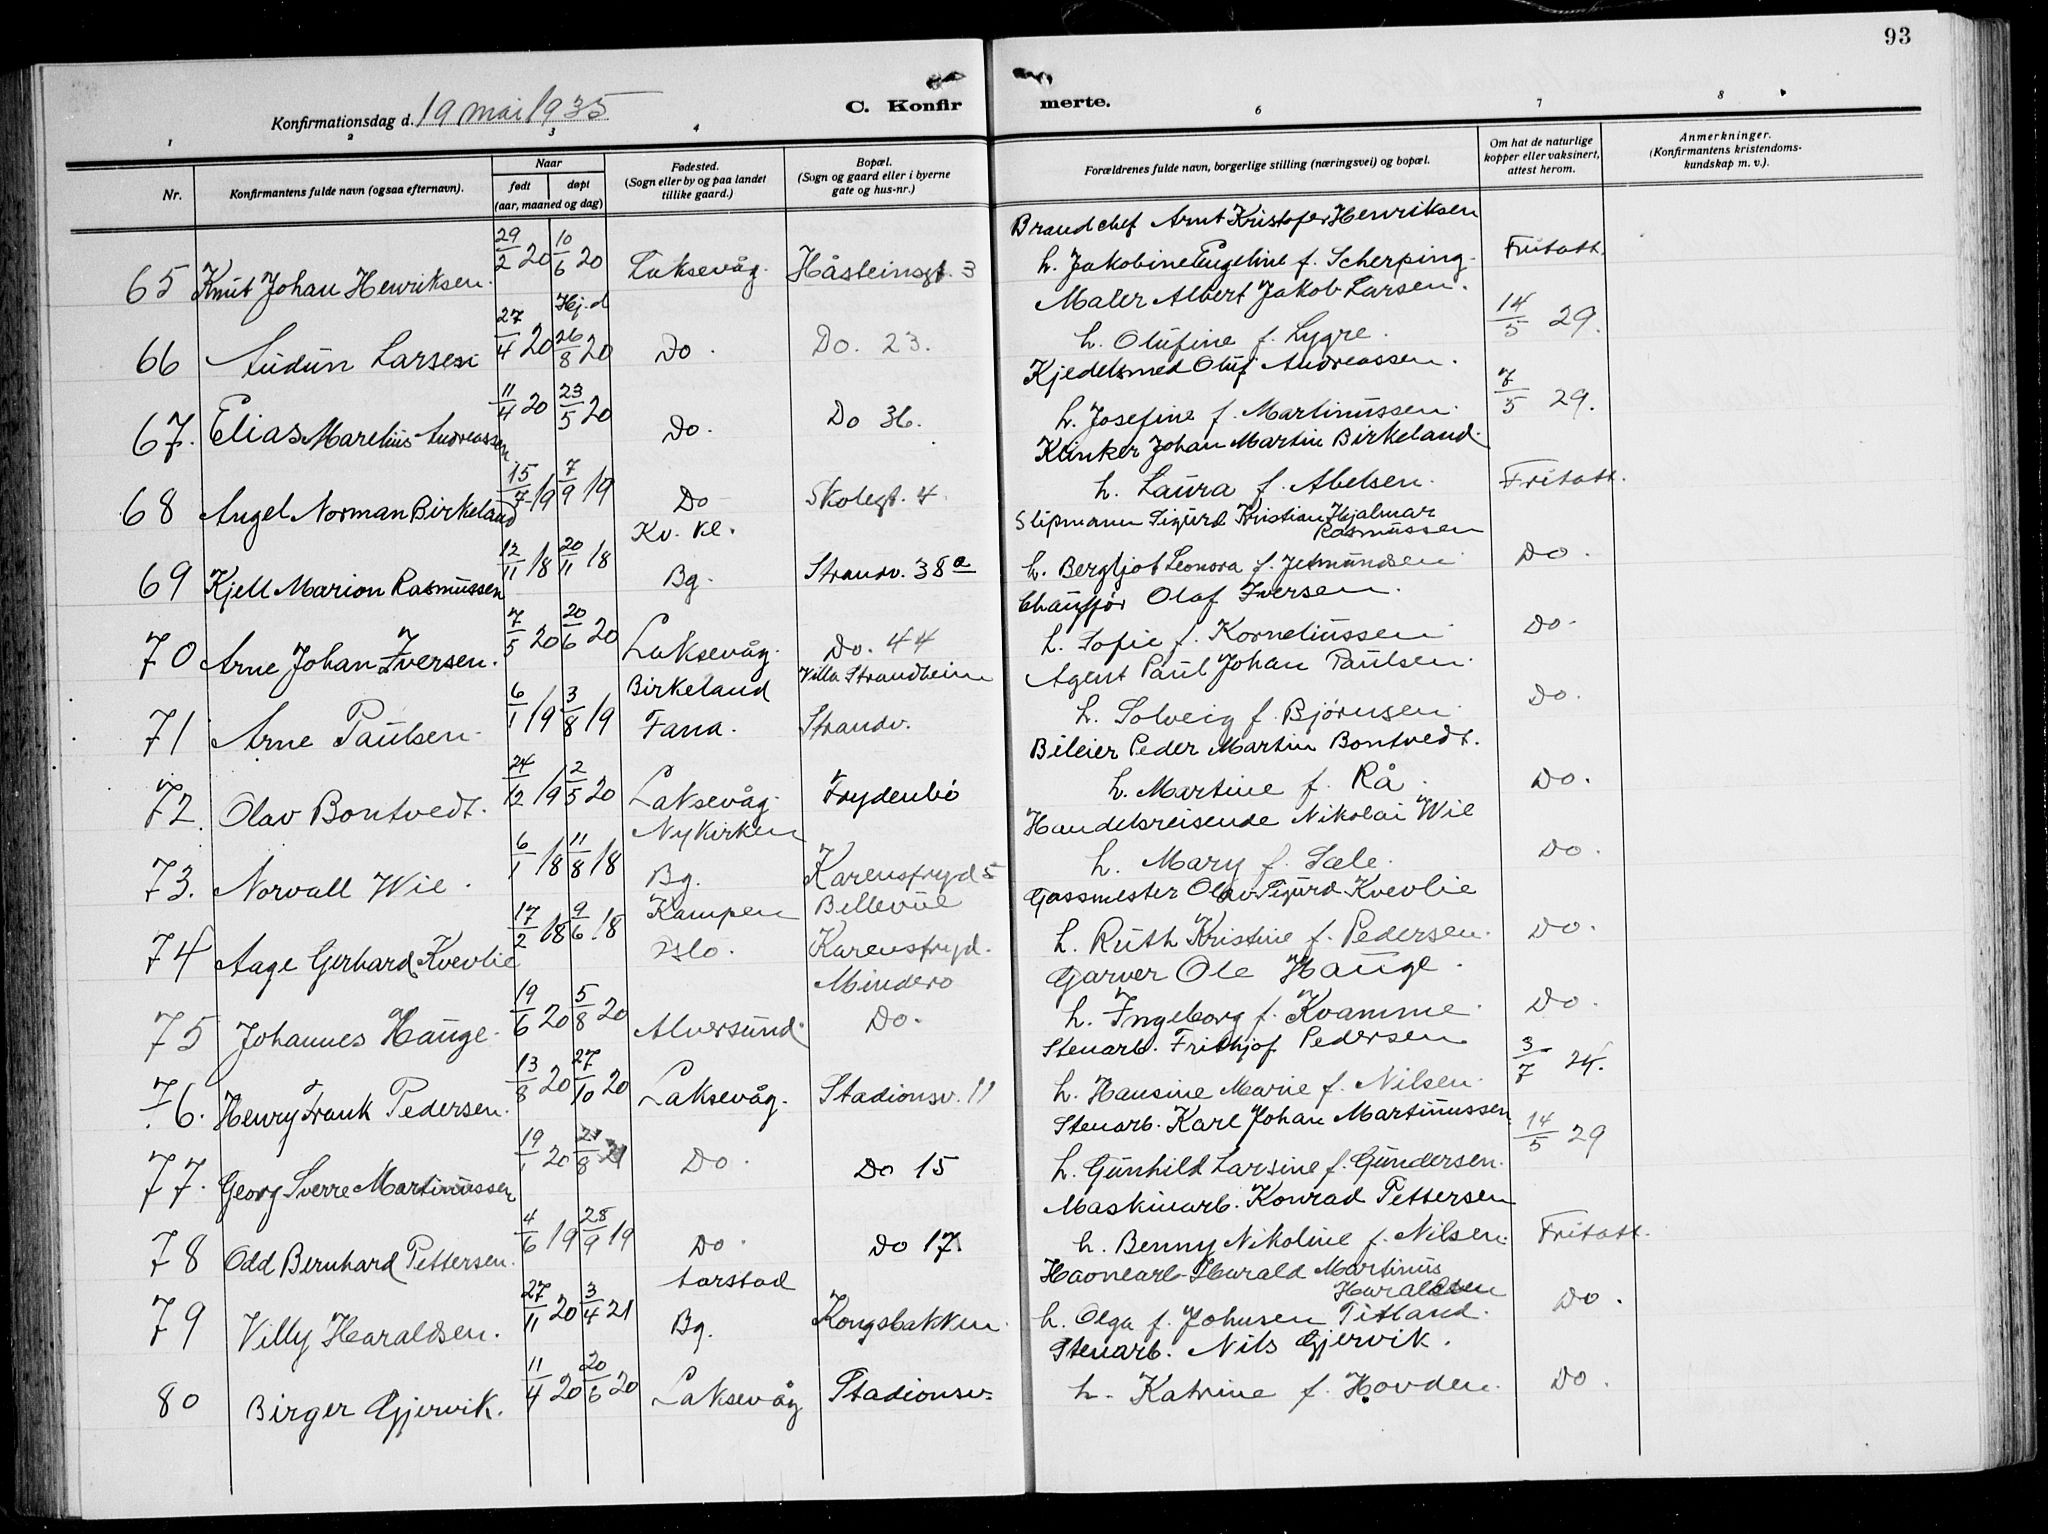 93
Konfirmationsdag d. 19 mai 1935
C. Konfirmerte.
1 2 3 4 6 7 8
Nr.
Konfirmantens fulde navn (ogsaa efternavn).
Naar
født døpt
(aar, maaned og dag)
Fødested.
(Sogn eller by og paa landet
tillike gaard.)
Bopæl.
(Sogn og gaard eller i byerne
gate og hus-nr.)
Forældrenes fulde navn, borgerlige stilling (næringsvei) og bopæl.
Om hat de naturlige
kopper eller vaksinert,
attest herom.
Anmerkninger.
(Konfirmantens kristendoms-
kundskap m. v.).
Brandchef Arnt Kristofer Henriksen
65 Knut Johan Henriksen. 29/2 20 10/6 20 Laksevåg. Håsteinsgt. 3 h. Jakobine Engeline f. Scherping. Fritatt.
Hj. d Maler Albert Jakob Larsen.
66 Audun Larsen 27/4 20 26/8 20 Do. Do. 23. h. Olufine f. Lygre. 14/5 29.
Kjedelsmed Oluf Andreassen.
67. Elias Marelius Andreassen. 11/4 20 23/5 20 Do. Do 36. h. Josefine f. Martinussen. 7/5 29.
Klinker Johan Martin Birkeland.
68 Angel Norman Birkeland 15/7 19 7/9 19 Do Skolegt. 4. h. Laura f. Abelsen. Fritatt.
Kv. Kl. Slipmann Sigurd Kristian Hjalmar
Rasmussen
69 Kjell Marion Rasmussen 12/11 18 20/11 18 Bg. Strandv. 38 a h. Bergljot Leonora f. Jetmundsen Do.
Chaufför Olaf Iversen.
70 Arne Johan Iversen. 7/5 20 20/6 20 Laksevåg. Do. 44 h. Sofie f. Korneliussen Do.
Birkeland Villa Strandheim Agent Paul Johan Paulsen.
71 Arne Paulsen. 6/1 19 3/8 19 Fana. Strandv. h. Solveig f. Bjørnsen. Do.
Bileier Peder Martin Bontvedt.
72. Olav Bontvedt. 24/12 19 2/5 20 Laksevåg. Frydenbö h. Martine f. Rå. Do.
Nykirken Handelsreisende Nikolai Wie
73. Norvall Wie. 6/1 18 11/8 18 Bg. Karensfryd 5 h. Mary f. Sæle. Do.
Kampen Bellevue Gassmester Olav Sigurd Kvevlie
74 Aage Gerhard Kvevlie 17/2 18 9/6 18 Oslo. Karensfryd. h. Ruth Kristine f. Pedersen. Do.
Mindero Garver Ole Hauge.
75 Johannes Hauge. 19/6 20 5/8 20 Alversund. Do. h. Ingeborg f. Kvamme. Do.
Stenarb. Frithjof Pedersen
76. Henry Frank Pedersen. 13/8 20 27/10 20 Laksevåg. Stadionsv. 11 h. Hansine Marie f. Nilsen. 3/7 24.
Stenarb. Karl Johan Martinussen.
77. Georg Sverre Martinussen 19/1 20 21/8 Do. Do 15 h. Gunhild Larsine f. Gundersen. 14/5 29
Maskinarb. Konrad Pettersen
78 Odd Bernhard Pettersen. 4/6 19 28/9 19 Do. Do 17. h. Benny Nikoline f. Nilsen. Fritatt.
Aarstad Havnearb. Harald Martinus
Haraldsen
79 Villy Haraldsen. 27/11 20 3/4 21 Bg. Kongsbakken. h. Olga f. Johnsen Titland. Do.
Stenarb. Nils Gjervik.
80 Birger Gjervik. 11/4 20 20/6 20 Laksevåg Stadionsv. h. Katrine f. Hovden. Do.